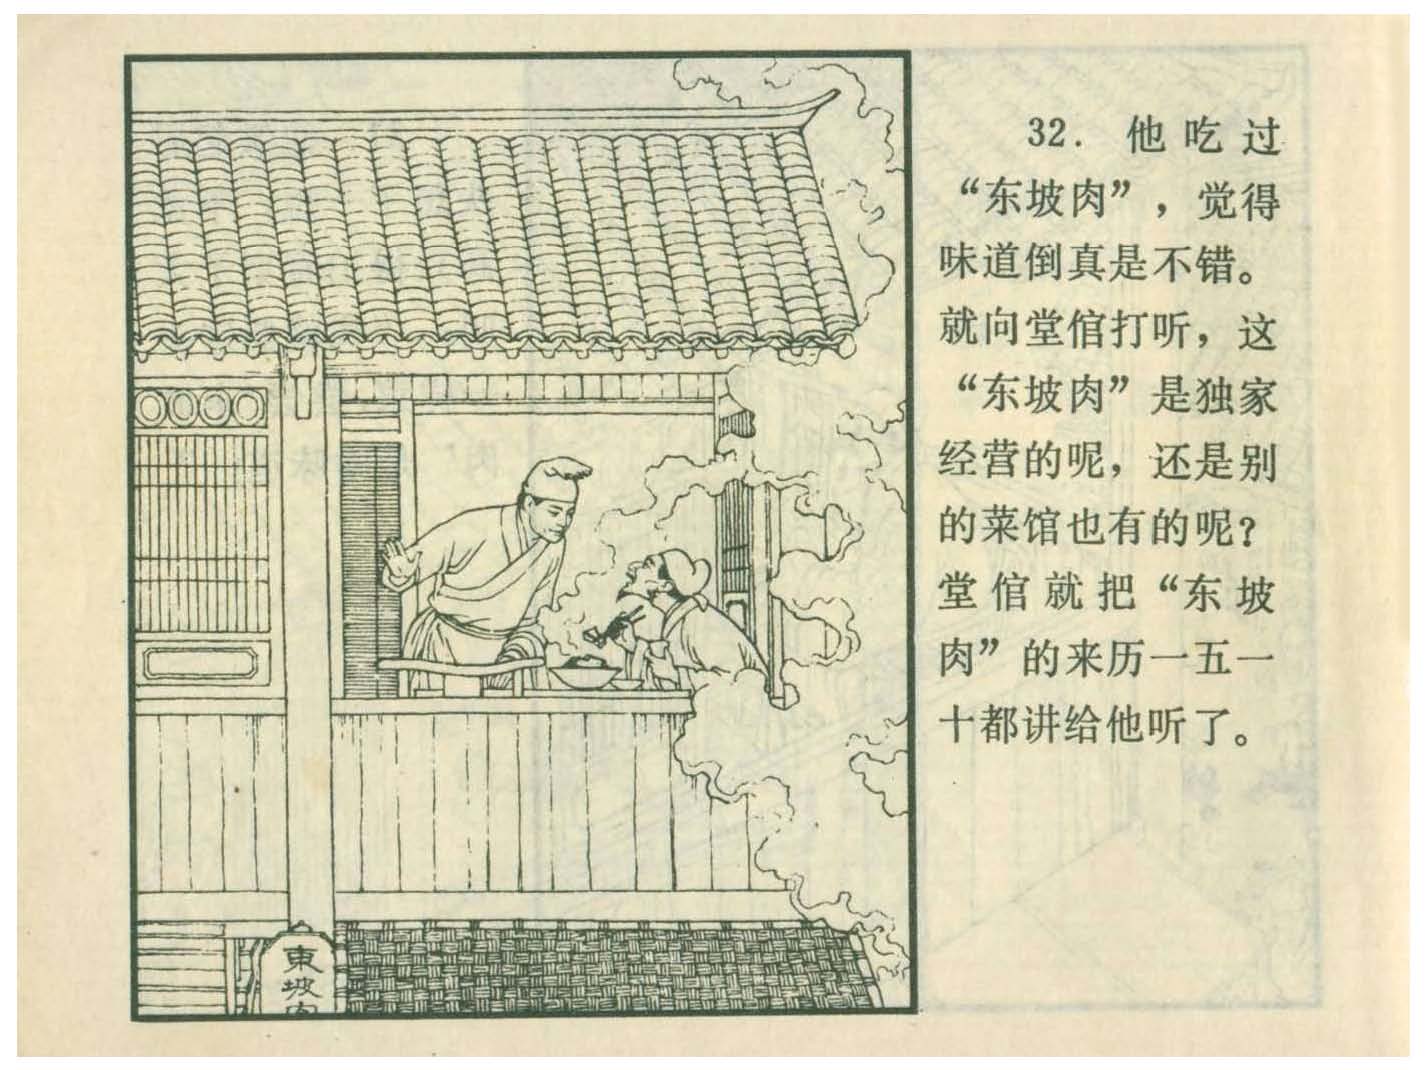 32. 他吃过
“东坡肉”，觉得
味道倒真是不错。
就向堂倌打听，这
“东坡肉”是独家
经营的呢，还是别
的菜馆也有的呢？
堂倌就把“东坡
肉”的来历一五一
十都讲给他听了。
東坡肉